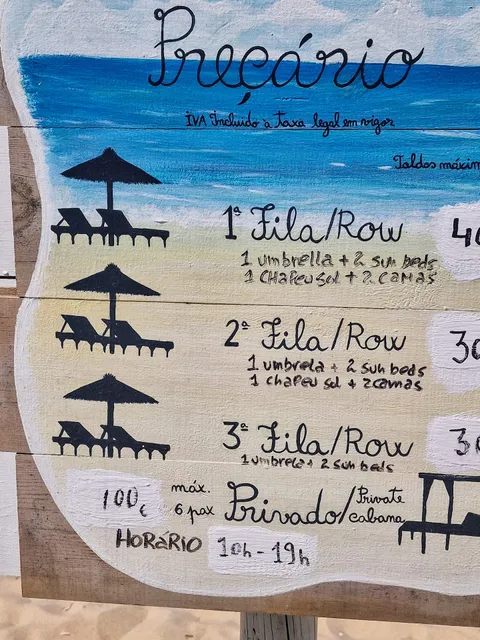 Preçário
IVA Incluído à Taxa legal em vigor
Toldos máxim
1ª Fila/Row 40
1 umbrella + 2 sun beds
1 CHAPEU SOL + 2 CAMAS
2ª Fila/Row 30
1 umbrela + 2 sun beds
1 chapeu sol + 2 camas
3ª Fila/Row 30
1 umbrela + 2 sun beds
100€ máx. 6 pax Privado/Private cabana
HORÁRIO 10h - 19h